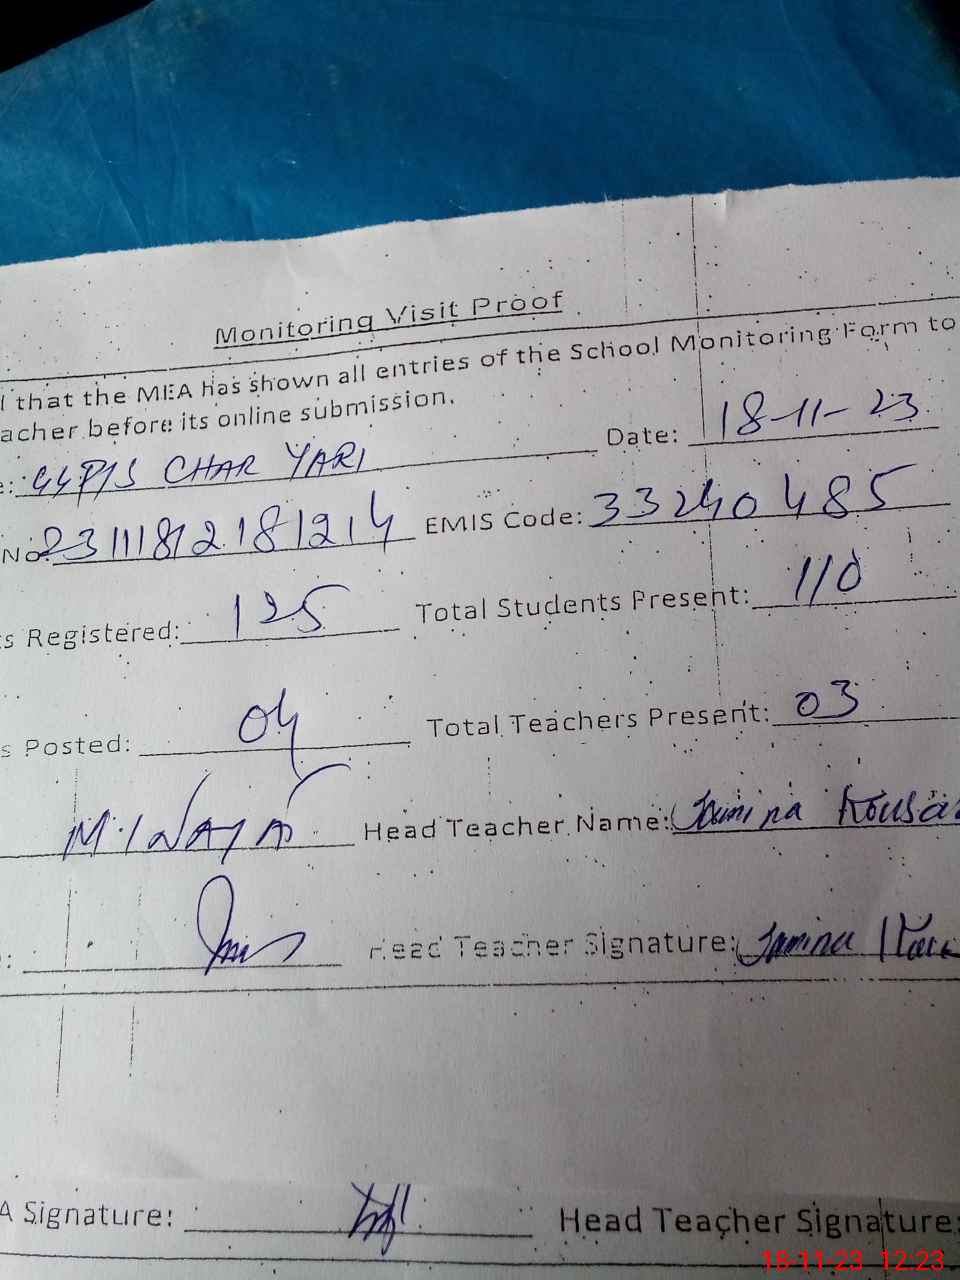 Monitoring Visit Proof
l that the MEA has shown all entries of the School Monitoring Form to
acher before its online submission.
e: GGP/S CHAR YARI Date: 18-11-23
No 23111812181214 EMIS Code: 33240485
ts Registered: 125 Total Students Present: 110
s Posted: 04 Total Teachers Present: 03
Head Teacher Name: Kousa
: Head Teacher Signature:
A Signature: Head Teacher Signature:
18-11-23 12:23